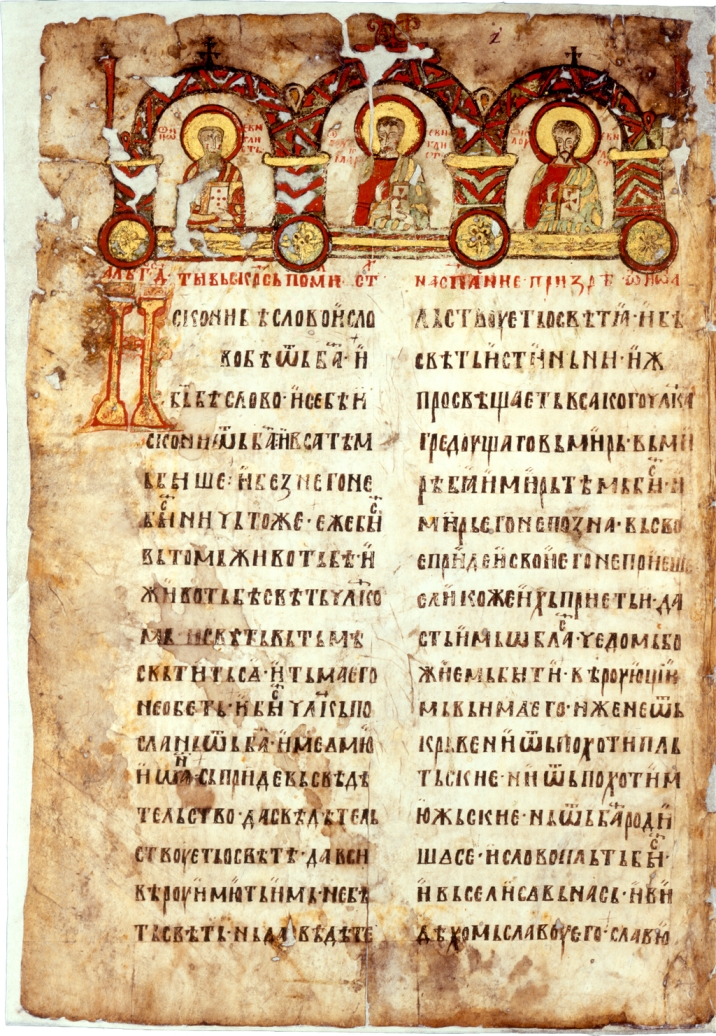 и҃
АЛЬГ҃А · ТЫ ВЬСКРСЬ ПОМИ · СТ
НА СПАНИЕ · ПРИЗРѢ · ѾИѠА
ИСКОНИ БѢ СЛОВО И СЛО
ВО БѢ Ѿ Ь Б҃А · И
Б҃Ь БѢ СЛОВО · И СЕ БѢ И
СКОНИ ѾЬ Б҃А · И ВСА ТѢМ
Ь БЫШЕ · И БЕЗ НЕГО НЕ
БЫⷭ НИЧЬТОЖЕ · ЕЖЕ БЫⷭ
ВЬ ТОМЬ ЖИВОТЬ БѢ · И
ЖИВОТЬ БѢ СВѢТЬ ЧЛ҃КО
МЬ · И СВѢТЬ ВЬ ТЬМѢ
СВЬТИТЬСА · И ТЬМА ЕГО
НЕ ОБЕТЬ · И БЫⷭ ЧЛ҃КЬ ПО
СЛАНЬ ѾЬ Б҃А · ИМЕ ѤМЮ
ИѠАⷩ · СЬ ПРИДЕ ВЬ СВѢДѢ
ТЕЛЬСТВО · ДА СВѢДѢТЕЛЬ
СТВОУЕТЬ О СВѢТѢ · ДА ВСИ
ВѢРОУ ИМЮТЬ ИМЬ · НЕ БѢ
ТЬ СВѢТЬ · НЬ ДА СВѢДѢТЕ
ЛЬСТВОУЕТЬ О СВѢТѢ · И БѢ
СВѢТЬ ИСТИНЬНИ · ИЖ
ПРОСВѢЩАЕТЬ ВСАКОГО ЧЛ҃КА
ГРЕДОУЩАГО ВЬ МИРЬ · ВЬ МИ
РѢ БѢ И МИРЬ ТѢМЬ БЫⷭ · И
МИРЬ ЕГО НЕ ПОЗНА · ВЬ СВО
Е ПРИДЕ И СВОИ ЕГО НЕ ПРИЕШЕ
ЕЛИКОЖЕ ИХЬ ПРИЕТЬ И · ДА
СТЬ ИМЬ ѠБЛАⷭ · ЧЕДОМЬ БО
ЖИЕМЬ БЫТИ · ВѢРОУЮЩИИ
МЬ ВЬ ИМА ЕГО · ИЖЕ НЕ ѾЬ
КРЬВЕ НИ ѾЬ ПОХОТИ ПЛЬ
ТЬСКИЕ · НИ ѾЬ ПОХОТИ М
ЮЖЬСКИЕ · НЬ ѾЬ Б҃А РОДИ
ШАСЕ · И СЛОВО ПЛЬТЬ БЫⷭ ·
И ВЬСЕЛИСА ВЬ НАСЬ · И ВИ
ДѢХОМЬ СЛАВОУ ЕГО · СЛАВЮ